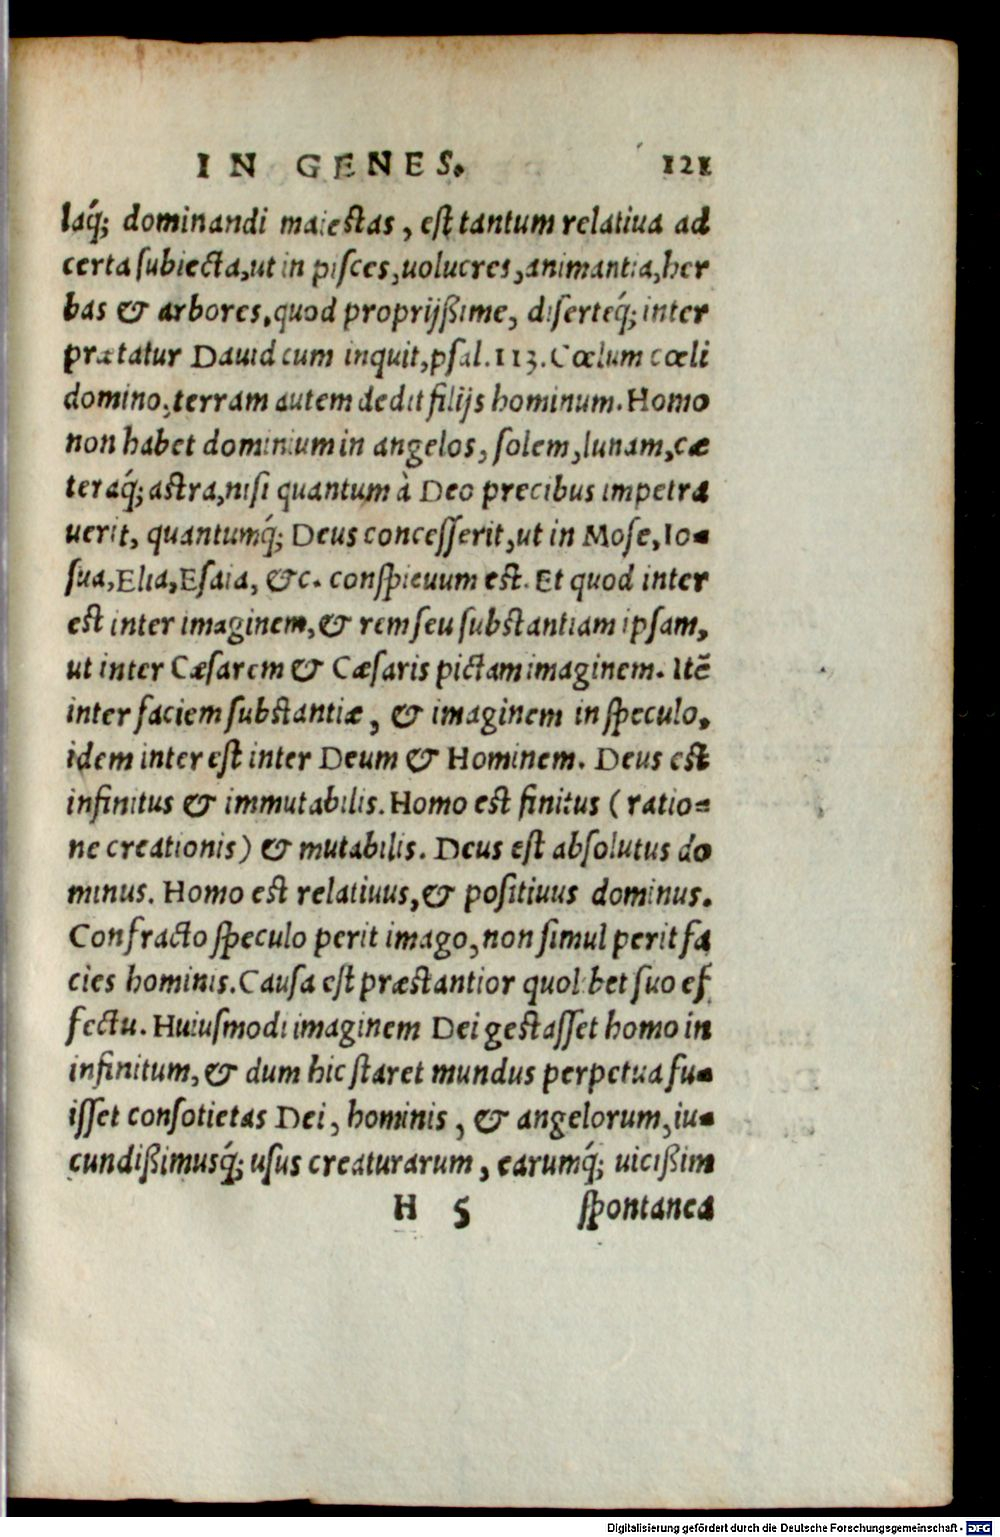 IN GENES. 121
laq́; dominandi maiestas, est tantum relatiua ad
certa subiecta,ut in pisces,uolucres,animantia,her
bas & arbores,quod proprijßime, diserteq́; inter
prætatur Dauid cum inquit,psal.113.Cœlum cœli
domino,terram autem dedit filijs hominum.Homo
non habet dominium in angelos, solem,lunam,cæ
teraq́; astra,nisi quantum à Deo precibus impetra
uerit, quantumq́; Deus concesserit,ut in Mose,Io-
sua,Elia,Esaia, &c. conspicuum est. Et quod inter
est inter imaginem,& rem seu substantiam ipsam,
ut inter Cæsarem & Cæsaris pictam imaginem. Itē
inter faciem substantiæ, & imaginem in speculo,
idem interest inter Deum & Hominem. Deus est
infinitus & immutabilis.Homo est finitus (ratio=
ne creationis) & mutabilis. Deus est absolutus do
minus. Homo est relatiuus,& positiuus dominus.
Confracto speculo perit imago,non simul perit fa
cies hominis.Causa est præstantior quolibet suo ef
fectu. Huiusmodi imaginem Dei gestasset homo in
infinitum,& dum hic staret mundus perpetua fu-
isset consotietas Dei, hominis, & angelorum,iu-
cundißimusq́; usus creaturarum, earumq́; uicißim
H 5 spontanea
Digitalisierung gefördert durch die Deutsche Forschungsgemeinschaft - DFG